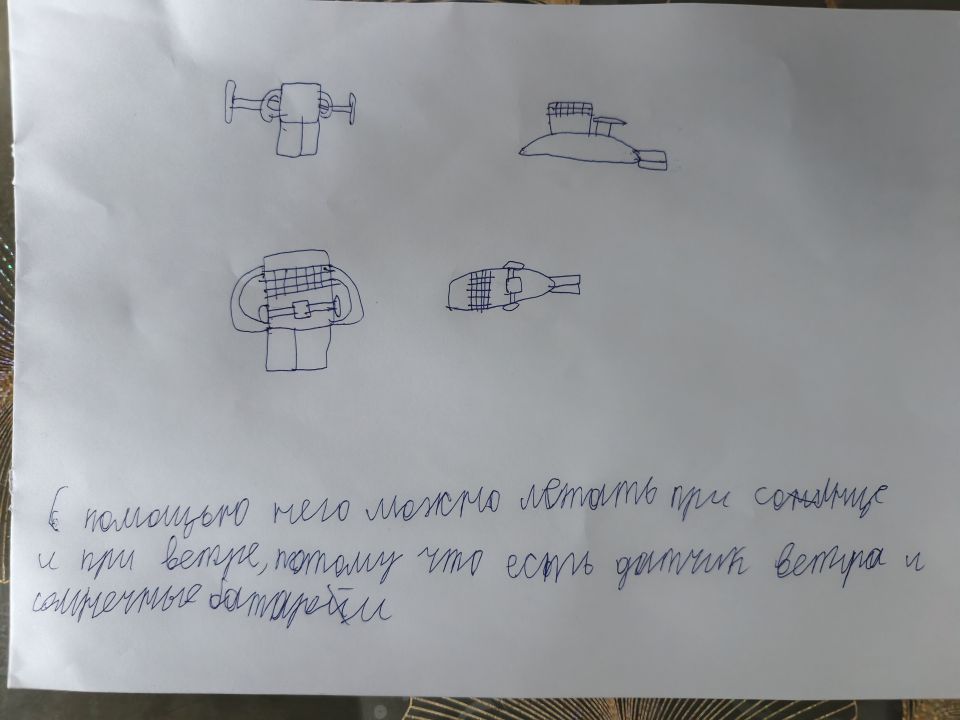 С помощью него можно летать при солнце
и при ветре, потому что есть датчик ветра и
солнечные батареи